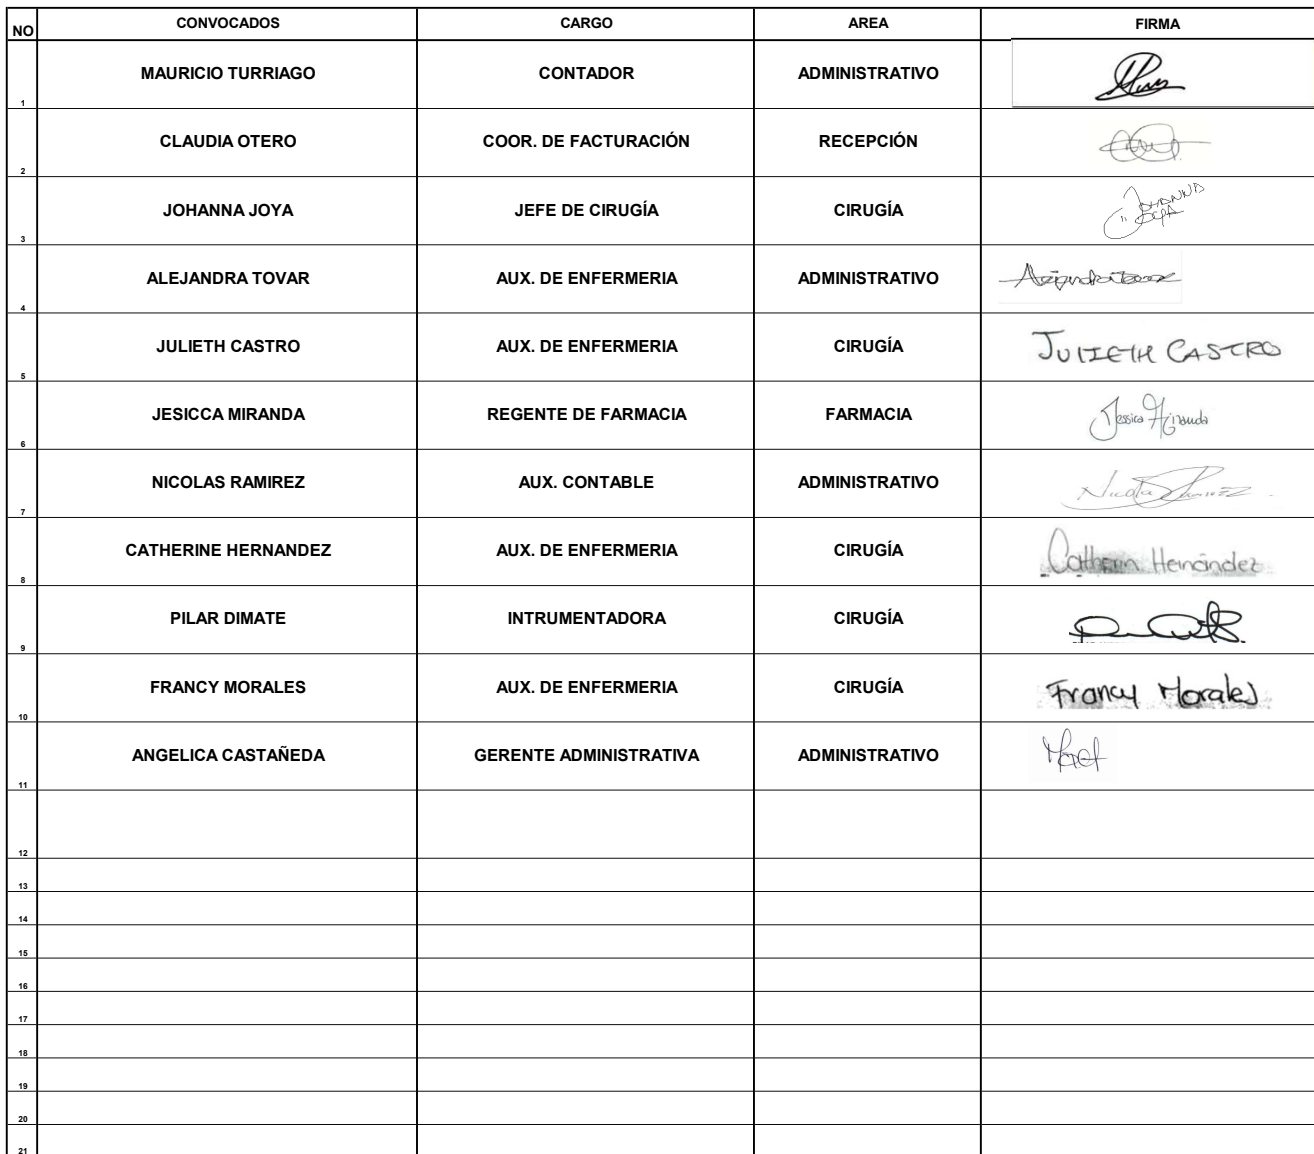 NO CONVOCADOS CARGO AREA FIRMA
1 MAURICIO TURRIAGO CONTADOR ADMINISTRATIVO
2 CLAUDIA OTERO COOR. DE FACTURACIÓN RECEPCIÓN
3 JOHANNA JOYA JEFE DE CIRUGÍA CIRUGÍA JOHANNA
4 ALEJANDRA TOVAR AUX. DE ENFERMERIA ADMINISTRATIVO Alejandra Tovar
5 JULIETH CASTRO AUX. DE ENFERMERIA CIRUGÍA JULIETH CASTRO
6 JESICCA MIRANDA REGENTE DE FARMACIA FARMACIA Jessica Miranda
7 NICOLAS RAMIREZ AUX. CONTABLE ADMINISTRATIVO Nicolas Ramirez
8 CATHERINE HERNANDEZ AUX. DE ENFERMERIA CIRUGÍA Catherin Hernández
9 PILAR DIMATE INTRUMENTADORA CIRUGÍA
10 FRANCY MORALES AUX. DE ENFERMERIA CIRUGÍA Francy Morales
11 ANGELICA CASTAÑEDA GERENTE ADMINISTRATIVA ADMINISTRATIVO
12
13
14
15
16
17
18
19
20
21